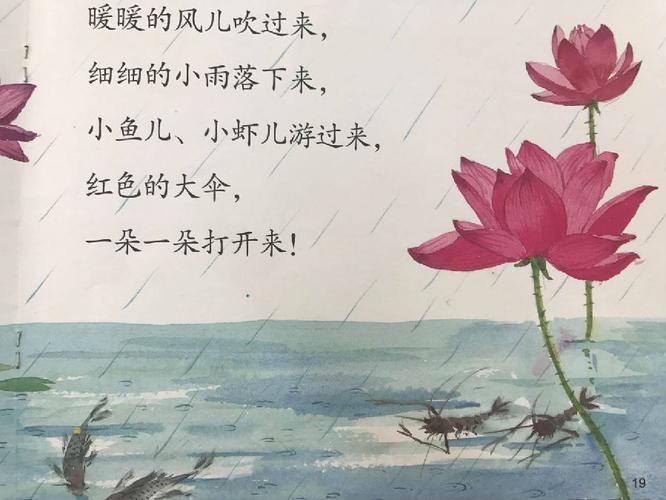 暖暖的风儿吹过来，
细细的小雨落下来，
小鱼儿、小虾儿游过来，
红色的大伞，
一朵一朵打开来！
19